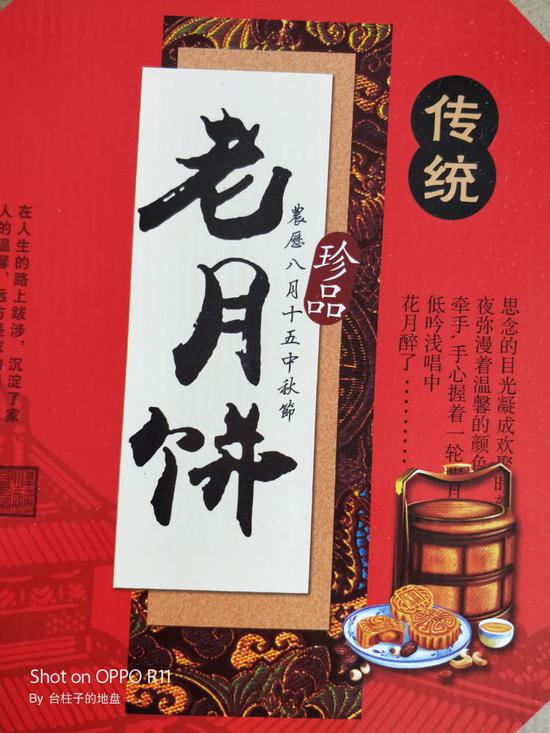 传统
老月饼
農曆八月十五中秋節
珍品
思念的目光凝成欢聚
夜弥漫着温馨的颜色
牵手,手心握着一轮明月
低吟浅唱中
花月醉了…………
在人生的路上跋涉,沉淀了家
人的温馨,远方是
Shot on OPPO R11
By 台柱子的地盘